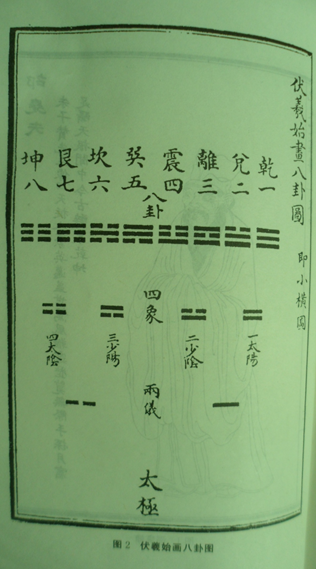 伏羲始畫八卦圖
即小橫圖
乾一
兌二
離三
震四
巽五
坎六
艮七
坤八
八卦
四象
一太陽
二少陰
三少陽
四太陰
兩儀
太極
图2 伏羲始画八卦图